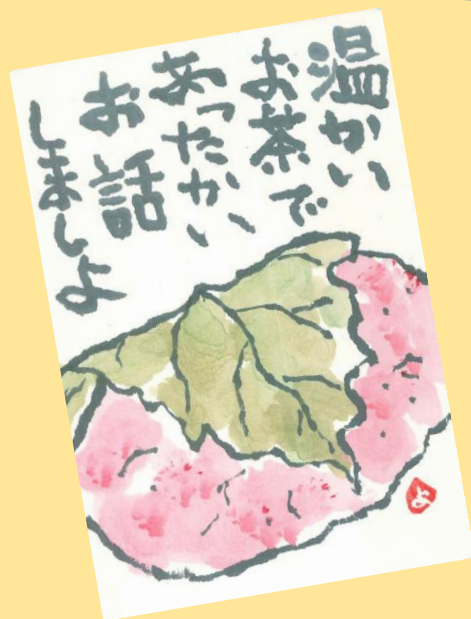 温かい
お茶で
あったかい
お話
しましよ
よ